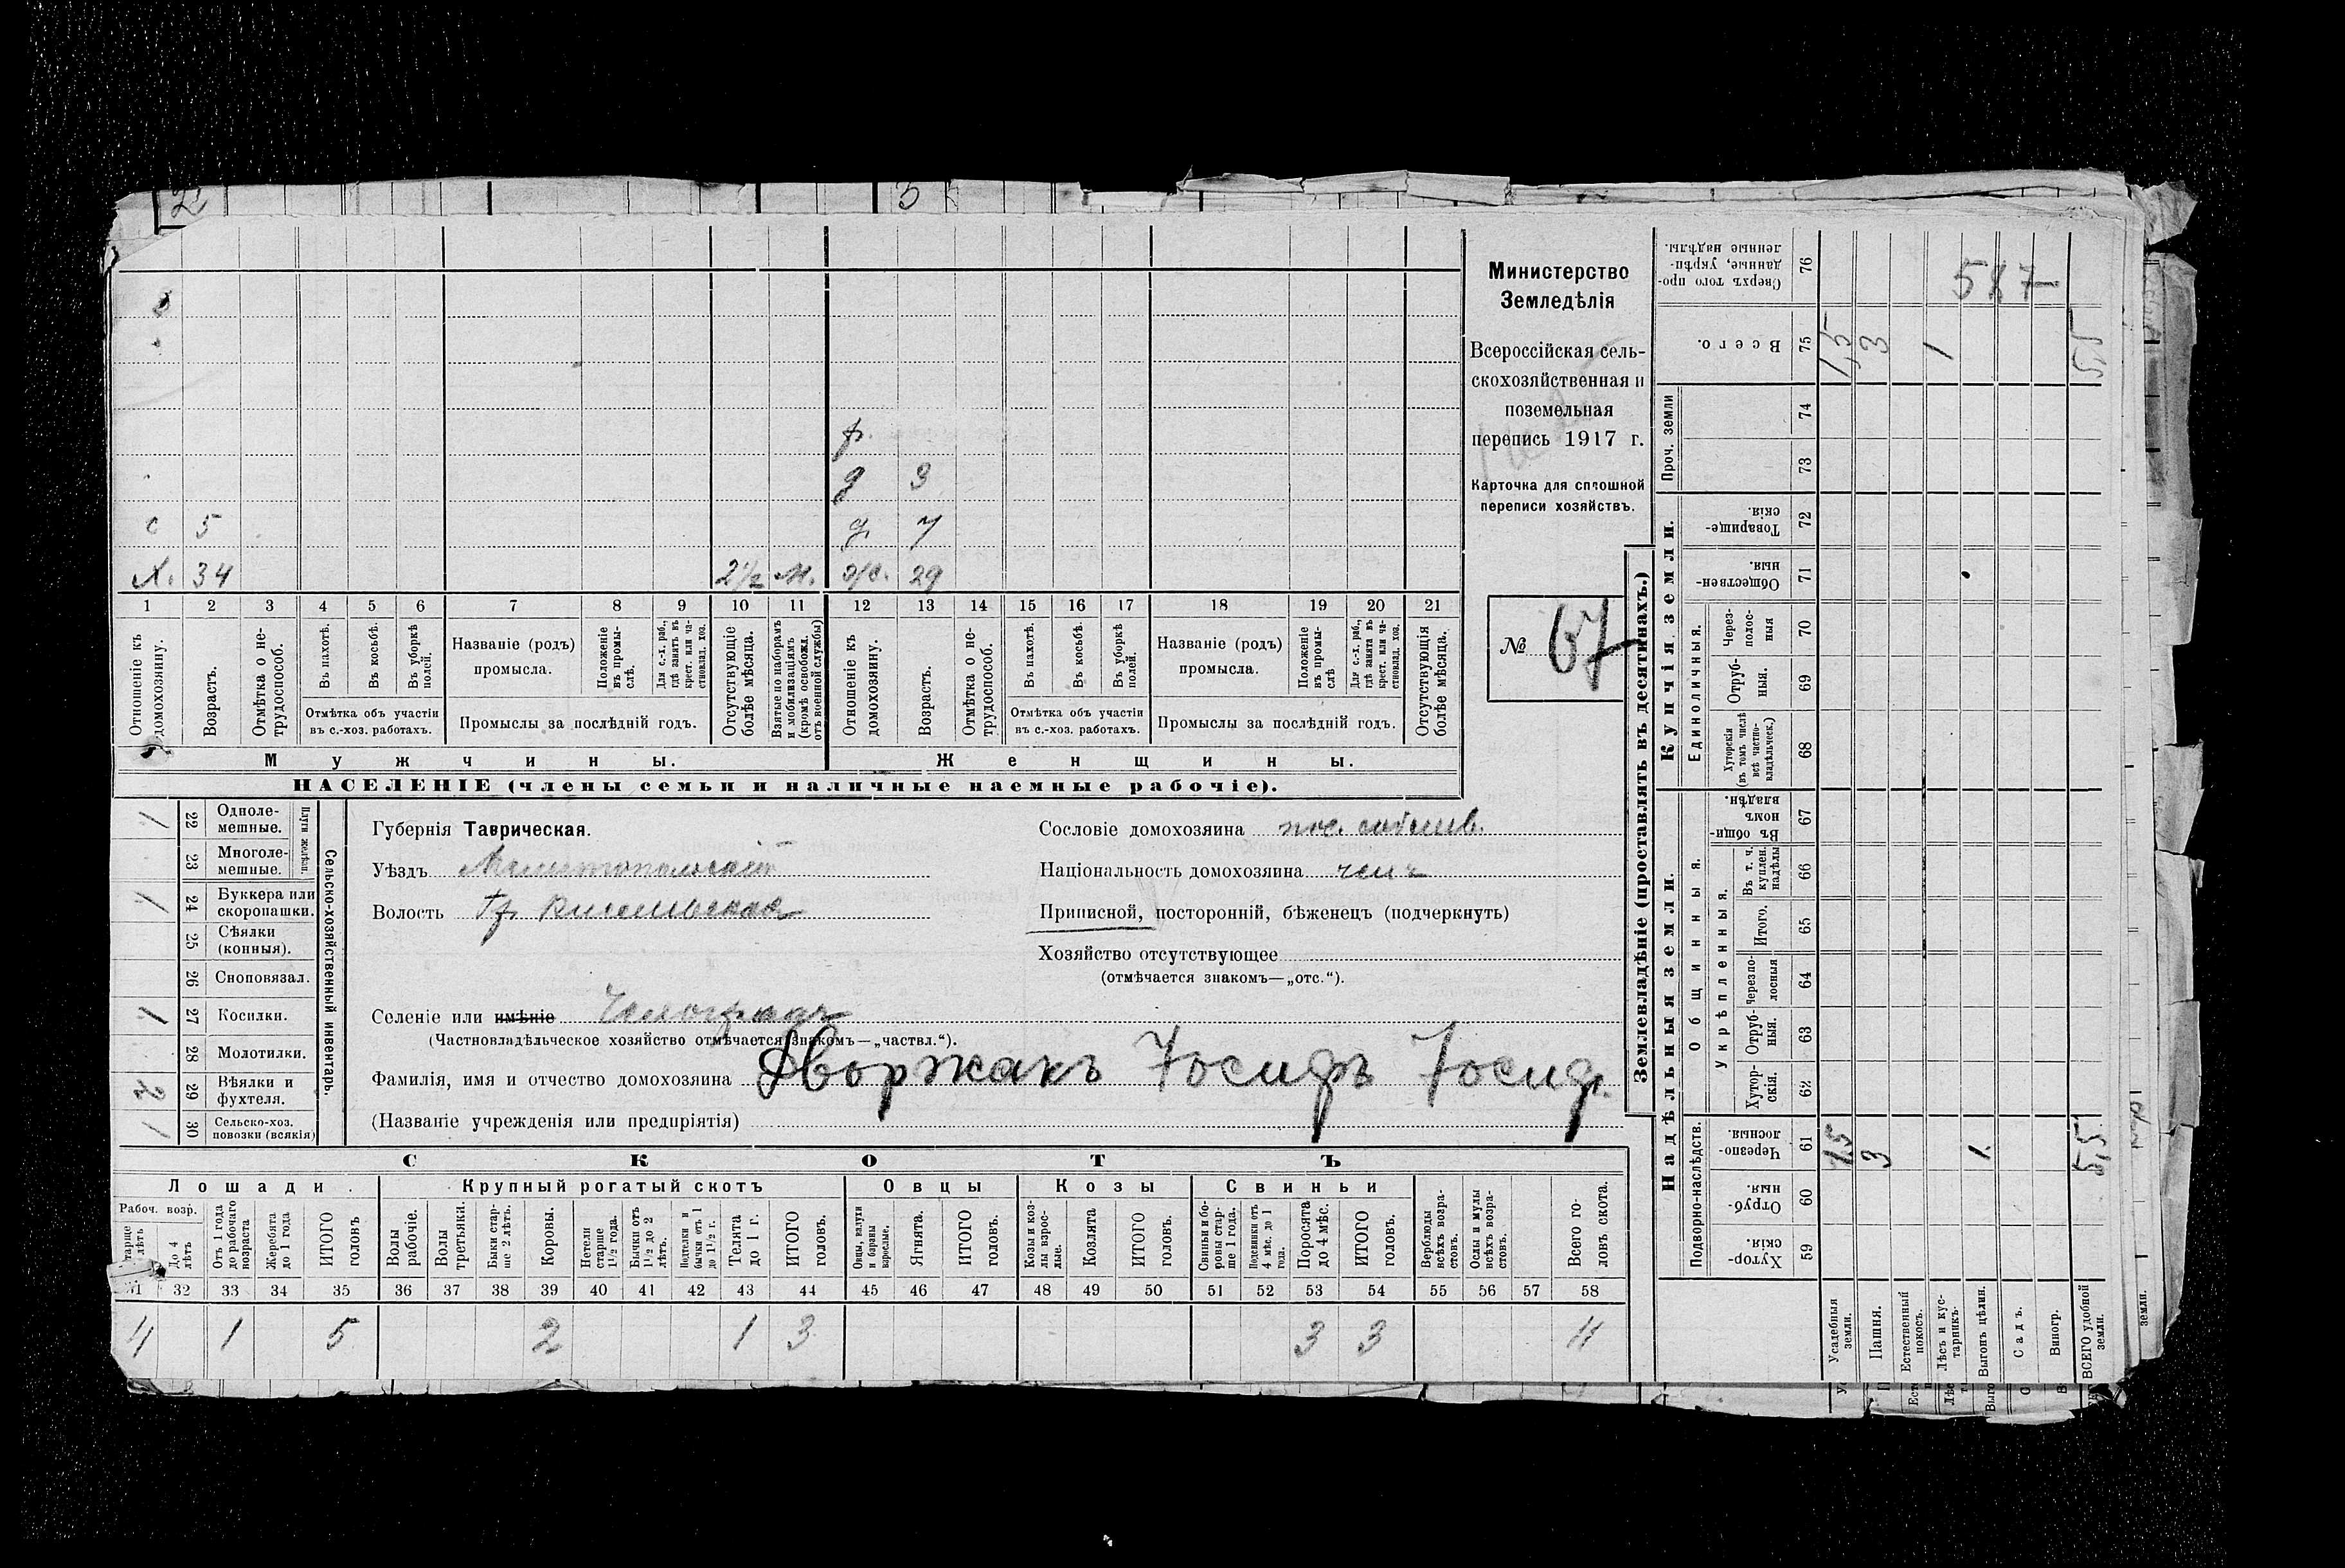 2
5
р.
д 3
с 5 д. 7
х. 34 2½ м. ж. 29
1 2 3 4 5 6 7 8 9 10 11 12 13 14 15 16 17 18 19 20 21
Отношеніе къ домохозяину.
Возрастъ.
Отмѣтка о нетрудоспособ.
Въ пахотѣ.
Въ косьбѣ.
Въ уборкѣ полей.
Отмѣтка объ участіи
въ с.-хоз. работахъ.
Названіе (родъ)
промысла.
Положеніе въ промыслѣ.
Для с.-х. раб., гдѣ занятъ въ крест. или частновлад. хоз.
Промыслы за послѣдній годъ.
Отсутствующіе болѣе мѣсяца.
Взятые по наборамъ и мобилизаціямъ (кромѣ освобожд. отъ военной службы)
Отношеніе къ домохозяину.
Возрастъ.
Отмѣтка о нетрудоспособ.
Въ пахотѣ.
Въ косьбѣ.
Въ уборкѣ полей.
Отмѣтка объ участіи
въ с.-хоз. работахъ.
Названіе (родъ)
промысла.
Положеніе въ промыслѣ
Для с.-х. раб., гдѣ занята въ крест. или частновлад. хоз.
Промыслы за послѣдній годъ.
Отсутствующія болѣе мѣсяца.
Мужчины.
Женщины.
НАСЕЛЕНІЕ (члены семьи и наличные наемные рабочіе).
Министерство
Земледѣлія
Всероссійская сель-
скохозяйственная и
поземельная
перепись 1917 г.
Карточка для сплошной
переписи хозяйствъ.
№ 67
Сельско-хозяйственный инвентарь.
Плуги желѣзн.
1 22 Одноле-
мешные.
23 Многоле-
мешные.
1 24 Буккера или
скоропашки.
25 Сѣялки
(конныя).
26 Сноповязал.
1 27 Косилки.
28 Молотилки.
2 29 Вѣялки и
фухтеля.
1 30 Сельско-хоз.
повозки (всякія)
Губернія Таврическая.
Уѣздъ Мелитопольскій
Волость
Сословіе домохозяина пос. собств.
Національность домохозяина чехъ
Приписной, посторонній, бѣженецъ (подчеркнуть)
Хозяйство отсутствующее
(отмѣчается знакомъ—„отс.“).
Селеніе или имѣніе Чехоградъ
(Частновладѣльческое хозяйство отмѣчается знакомъ—„частвл.“).
Фамилія, имя и отчество домохозяина Дворжакъ Іосифъ Іосиф.
(Названіе учрежденія или предпріятія)
СКОТЪ
Лошади.
Крупный рогатый скотъ
Овцы
Козы
Свиньи
Рабоч. возр.
До 4 лѣтъ
Отъ 1 года до рабочаго возраста
Жеребята до 1 года
ИТОГО головъ
Волы рабочіе.
Волы третьяки.
Быки старше 2 лѣтъ.
Коровы.
Нетели старше 1½ года.
Бычки отъ 1½ до 2 лѣтъ.
Подтелки и бычки отъ 1 до 1½ г.
Телята до 1 г.
ИТОГО головъ.
Овцы, валухи и бараны взрослые.
Ягнята.
ИТОГО головъ.
Козы и козлы взрослые.
Козлята
ИТОГО головъ.
Свиньи и боровы старше 1 года.
Подсвинки отъ 4 мѣс. до 1 года.
Поросята до 4 мѣс.
ИТОГО головъ.
Верблюды всѣхъ возрастовъ.
Ослы и мулы всѣхъ возрастовъ.
Всего головъ скота.
31 32 33 34 35 36 37 38 39 40 41 42 43 44 45 46 47 48 49 50 51 52 53 54 55 56 57 58
4 1 5 2 1 3 3 3 11
Землевладѣніе (проставлять въ десятинахъ.)
Надѣльныя земли.
Купчія земли.
Проч. земли
Подворно-наслѣдств.
Общинныя.
Укрѣпленныя.
Единоличныя.
Сверхъ того проданные, укрѣпленные надѣлы. 76
587
Всего. 75 1,5 3 1 5,5
74
73
Товарищескія. 72
Общественныя. 71
Черезполосныя 70
Отрубныя. 69
Хуторскія (въ томъ числѣ всѣ частновладѣльческ.) 68
Въ общинномъ владѣн. 67
Въ т. ч. куплен. надѣлы 66
Итого. 65
Черезполосныя 64
Отрубныя. 63
Хуторскія. 62
Черезполосныя. 61 1,5 3 1. 5,5
Отрубныя. 60
Хуторскія. 59
Усадебныя земли.
Пашня.
Естественный покосъ.
Лѣсъ и кустарникъ.
Выгонъ цѣлин.
Садъ.
Виногр.
ВСЕГО удобной земли.
земли.